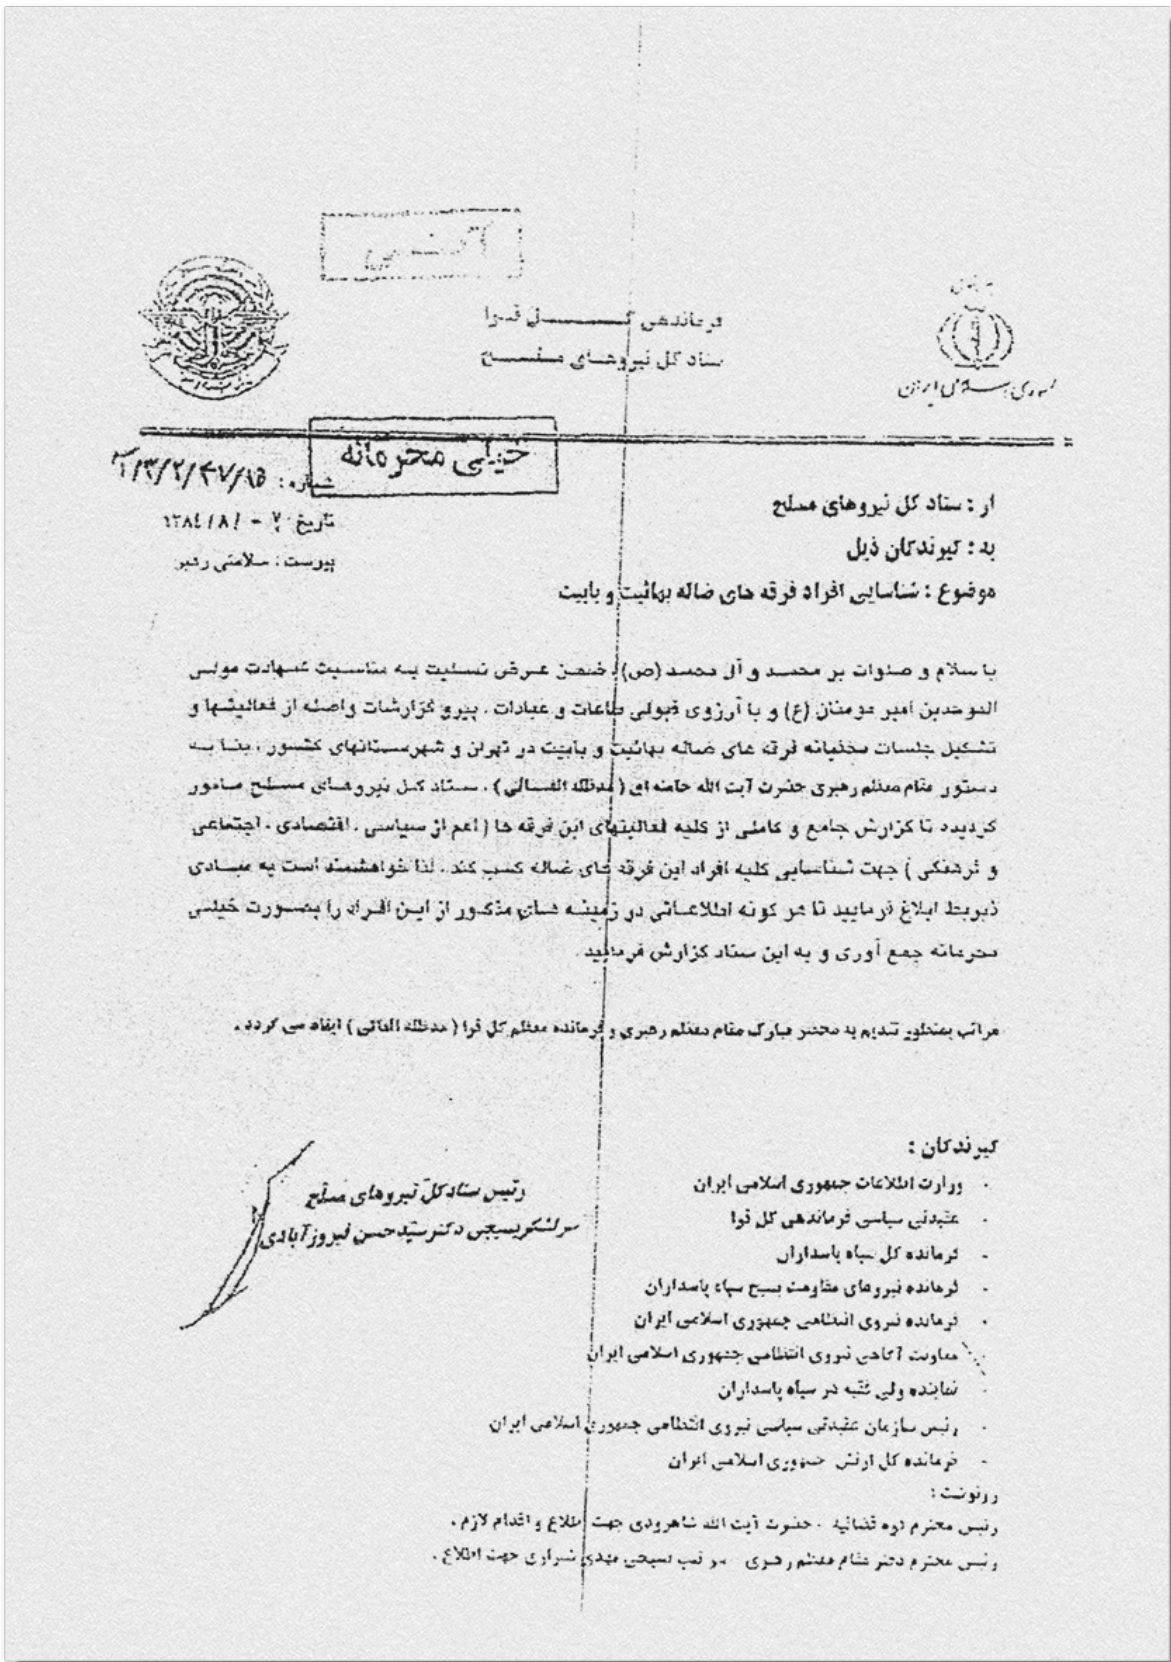 آنی
فرماندهی کل قوا
ستاد کل نیروهای مسلح
جمهوری اسلامی ایران
خیلی محرمانه
شماره :
تاریخ : ۲ - ۱۳۸۴/۸/
پیوست : سلامتی رهبر
از : ستاد کل نیروهای مسلح
به : گیرندگان ذیل
موضوع : شناسایی افراد فرقه های ضاله بهائیت و بابیت
با سلام و صلوات بر محمد و آل محمد (ص) ، ضمن عرض تسلیت به مناسبت شهادت مولی
الموحدین امیر مومنان (ع) و با آرزوی قبولی طاعات و عبادات . پیرو گزارشات واصله از فعالیتها و
تشکیل جلسات مخفیانه فرقه های ضاله بهائیت و بابیت در تهران و شهرستانهای کشور ، بنا به
دستور مقام معظم رهبری حضرت آیت الله خامنه ای ( مدظله العالی ) ، ستاد کل نیروهای مسلح مامور
گردیده تا گزارش جامع و کاملی از کلیه فعالیتهای این فرقه ها ( اعم از سیاسی ، اقتصادی ، اجتماعی
و فرهنگی ) جهت شناسایی کلیه افراد این فرقه های ضاله کسب کند . لذا خواهشمند است به مبادی
ذیربط ابلاغ فرمایید تا هر گونه اطلاعاتی در زمینه های مذکور از این افراد را بصورت خیلی
محرمانه جمع آوری و به این ستاد گزارش فرمایید .
مراتب بمنظور تقدیم به محضر مبارک مقام معظم رهبری و فرمانده معظم کل قوا ( مدظله العالی ) ایفاد می گردد .
رئیس ستاد کل نیروهای مسلح
سرلشکر بسیجی دکتر سید حسن فیروزآبادی
گیرندگان :
- وزارت اطلاعات جمهوری اسلامی ایران
- عقیدتی سیاسی فرماندهی کل قوا
- فرمانده کل سپاه پاسداران
- فرمانده نیروهای مقاومت بسیج سپاه پاسداران
- فرمانده نیروی انتظامی جمهوری اسلامی ایران
- معاونت آگاهی نیروی انتظامی جمهوری اسلامی ایران
- نماینده ولی فقیه در سپاه پاسداران
- رئیس سازمان عقیدتی سیاسی نیروی انتظامی جمهوری اسلامی ایران
- فرمانده کل ارتش جمهوری اسلامی ایران
رونوشت :
رئیس محترم قوه قضائیه . حضرت آیت الله شاهرودی جهت اطلاع و اقدام لازم .
رئیس محترم دفتر مقام معظم رهبری بسیجی مهدی شیرازی جهت اطلاع .